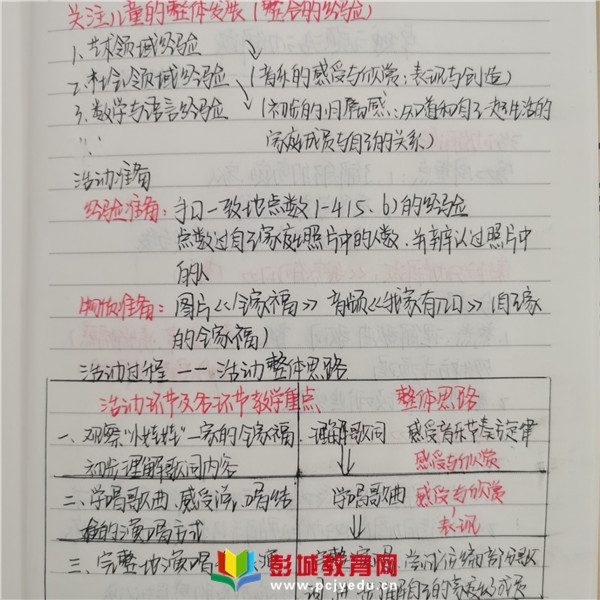 关注儿童的整体发展(整合的经验)
1、艺术领域经验
2、社会领域经验 (音乐的感受与欣赏;表现与创造)
3、数学与语言经验 (初步的归属感:知道和自己一起生活的
家庭成员与自己的关系)
活动准备
经验准备:手口一致地点数1-4(5、6)的经验
点数过自己家庭照片中的人数,并辨认过照片中
的人
物质准备:图片《全家福》 音频《我家有几口》(自己家
的全家福)
活动过程——活动整体思路
活动环节及各环节教学重点 整体思路
一、观察"娃娃"一家的全家福, 理解歌词 感受音乐节奏旋律
初步理解歌词内容 感受与欣赏
二、学唱歌曲,感受 唱结 学唱歌曲 感受与欣赏
的演唱方式 表现
三、完整地演唱 完整演唱
彭城教育网
www.pcjyedu.cn